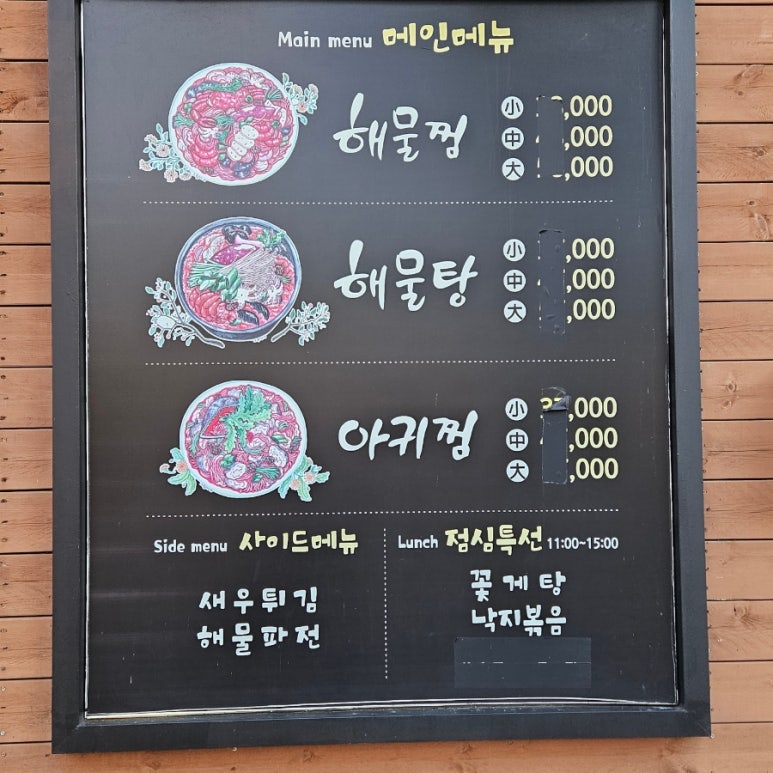 Main menu 메인메뉴
해물찜
小 ,000
中 ,000
大 ,000
해물탕
小 ,000
中 ,000
大 ,000
아귀찜
小 ,000
中 ,000
大 ,000
Side menu 사이드메뉴
새우튀김
해물파전
Lunch 점심특선 11:00~15:00
꽃게탕
낙지볶음